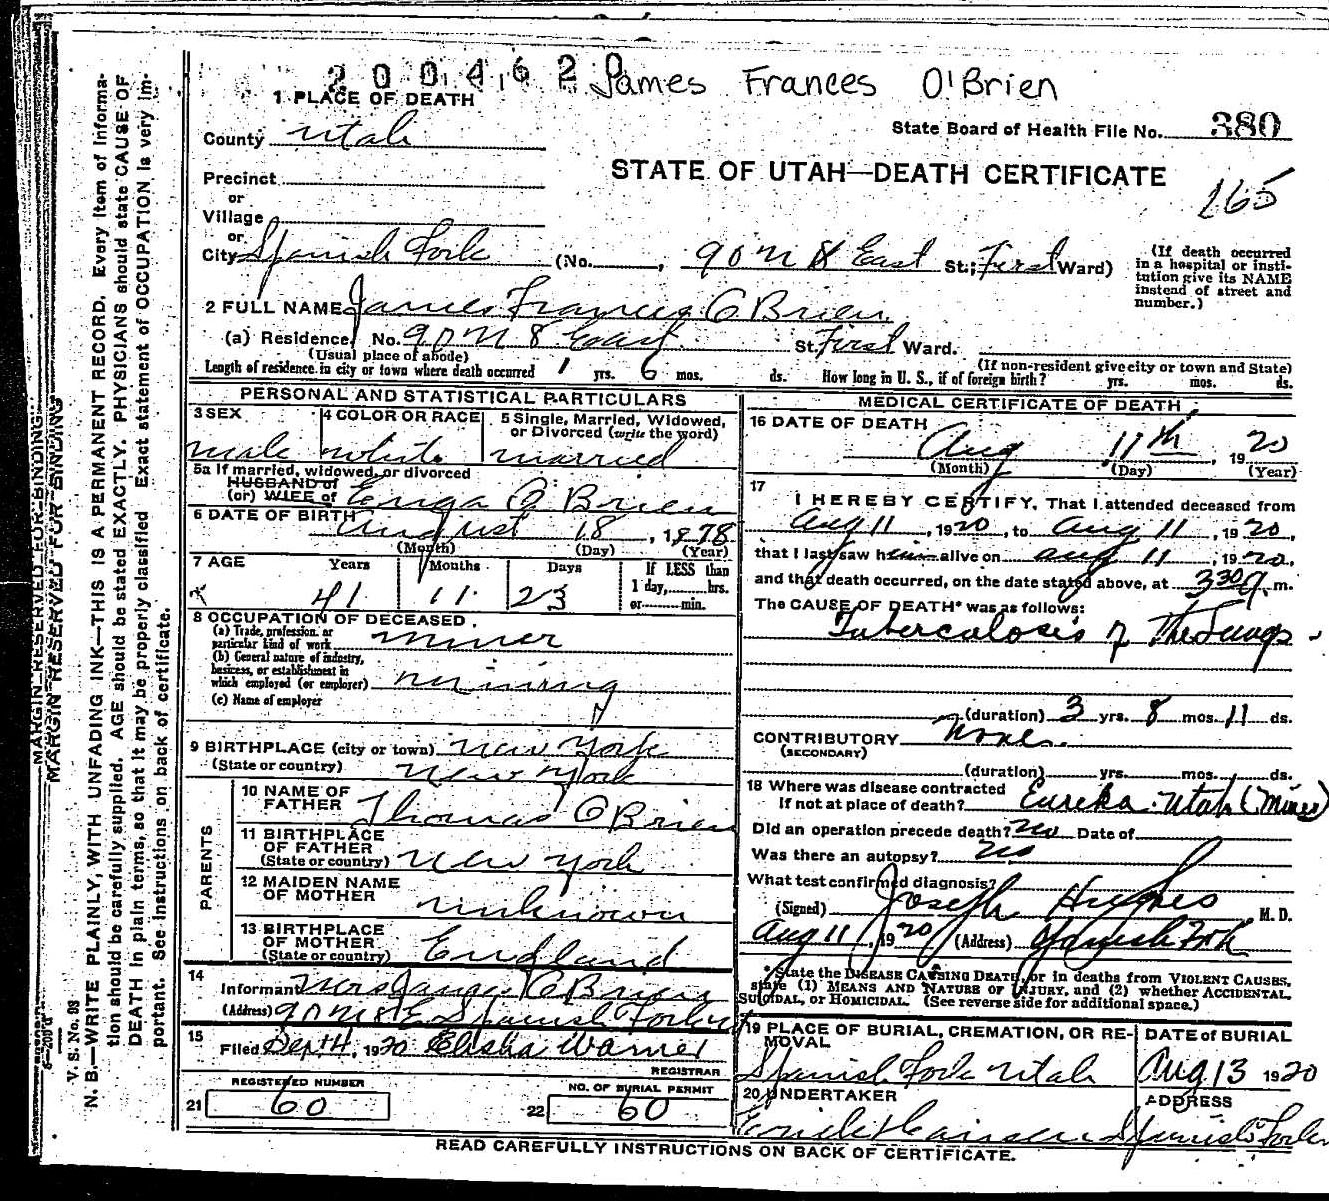 2004620
James Frances O'Brien
1 PLACE OF DEATH
State Board of Health File No. 380
County Utah
STATE OF UTAH—DEATH CERTIFICATE
165
Precinct
or
Village
or
City Spanish Fork (No. , 90 N 8 East St.; First Ward)
(If death occurred in a hospital or institution give its NAME instead of street and number.)
2 FULL NAME James Frances O'Brien
(a) Residence. No. 90 N 8 East St. First Ward.
(Usual place of abode) (If non-resident give city or town and State)
Length of residence in city or town where death occurred 1 yrs. 6 mos. ds. How long in U. S., if of foreign birth? yrs. mos. ds.
PERSONAL AND STATISTICAL PARTICULARS
3 SEX
male
4 COLOR OR RACE
white
5 Single, Married, Widowed, or Divorced (write the word)
married
5a If married, widowed, or divorced
HUSBAND of
(or) WIFE of O'Brien
6 DATE OF BIRTH August 18, 1878
(Month) (Day) (Year)
7 AGE Years Months Days If LESS than
1 day, hrs.
or min.
41 11 23
8 OCCUPATION OF DECEASED
(a) Trade, profession, or particular kind of work miner
(b) General nature of industry, business, or establishment in which employed (or employer) mining
(c) Name of employer
9 BIRTHPLACE (city or town) New York
(State or country) New York
PARENTS
10 NAME OF FATHER Thomas O'Brien
11 BIRTHPLACE OF FATHER (State or country) New York
12 MAIDEN NAME OF MOTHER unknown
13 BIRTHPLACE OF MOTHER (State or country) England
14
Informant Mrs James O'Brien
(Address) 90 N 8 E Spanish Fork Ut
15
Filed Sept 4, 1920 Elisha Warner
REGISTRAR
REGISTERED NUMBER
21 60
NO. OF BURIAL PERMIT
22 60
MEDICAL CERTIFICATE OF DEATH
16 DATE OF DEATH
Aug 11th, 1920
(Month) (Day) (Year)
17
I HEREBY CERTIFY, That I attended deceased from
Aug 11, 1920, to Aug 11, 1920,
that I last saw him alive on Aug 11, 1920,
and that death occurred, on the date stated above, at 330 m.
The CAUSE OF DEATH* was as follows:
Tuberculosis of The Lungs
(duration) 3 yrs. 8 mos. 11 ds.
CONTRIBUTORY None.
(SECONDARY)
(duration) yrs. mos. ds.
18 Where was disease contracted
If not at place of death? Eureka Utah (Mines)
Did an operation precede death? No Date of
Was there an autopsy? No
What test confirmed diagnosis?
(Signed) Joseph Hughes M. D.
Aug 11, 1920 (Address) Spanish Fork
*State the DISEASE CAUSING DEATH, or in deaths from VIOLENT CAUSES, state (1) MEANS AND NATURE OF INJURY, and (2) whether ACCIDENTAL, SUICIDAL, or HOMICIDAL. (See reverse side for additional space.)
19 PLACE OF BURIAL, CREMATION, OR REMOVAL
Spanish Fork Utah
DATE OF BURIAL
Aug 13 1920
20 UNDERTAKER
ADDRESS
Spanish Fork
READ CAREFULLY INSTRUCTIONS ON BACK OF CERTIFICATE.
MARGIN RESERVED FOR BINDING
MARGIN RESERVED FOR BINDING
V. S. No. 98
N. B.—WRITE PLAINLY, WITH UNFADING INK—THIS IS A PERMANENT RECORD. Every item of information should be carefully supplied. AGE should be stated EXACTLY. PHYSICIANS should state CAUSE OF DEATH in plain terms, so that it may be properly classified. Exact statement of OCCUPATION is very important. See instructions on back of certificate.